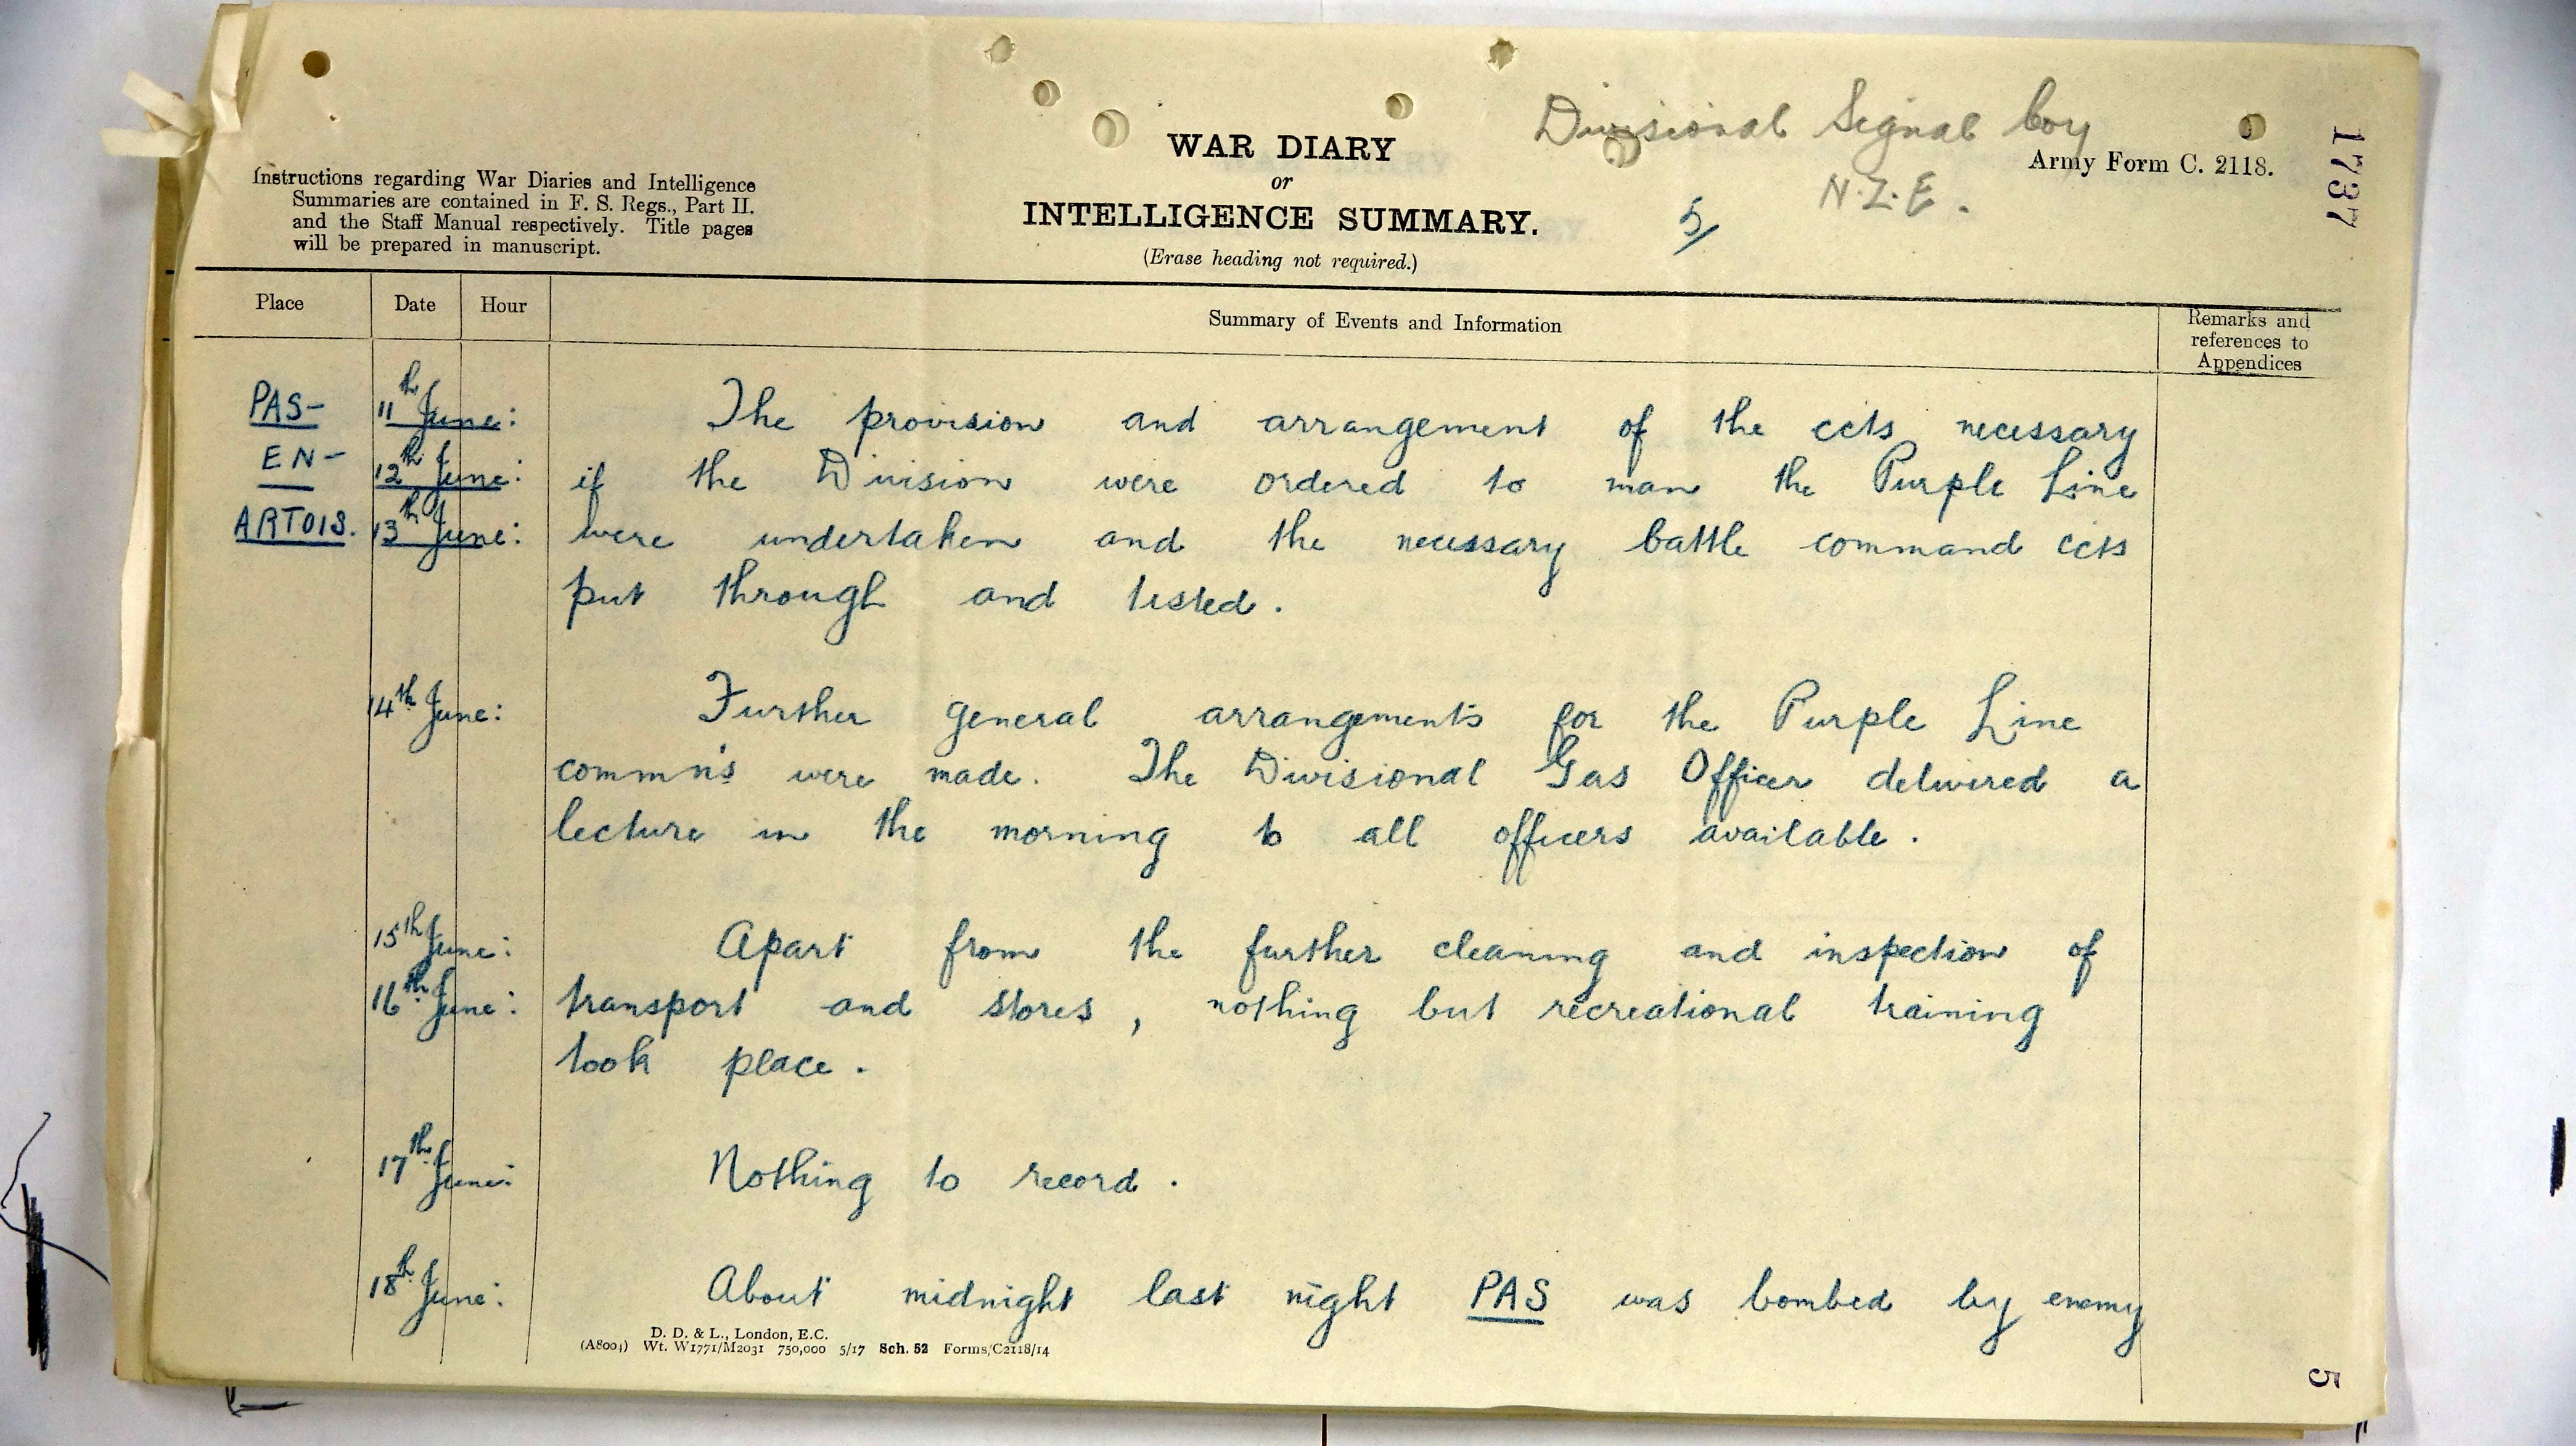 Divisional Signal Coy
N.Z.E.
Army Form C. 2118.
1737
5/
WAR DIARY
or
INTELLIGENCE SUMMARY.
(Erase heading not required.)
Instructions regarding War Diaries and Intelligence
Summaries are contained in F. S. Regs., Part II.
and the Staff Manual respectively. Title pages
will be prepared in manuscript.
Place Date Hour Summary of Events and Information Remarks and
references to
Appendices
PAS- 11th June: The provision and arrangement of the ccts necessary
EN- 12th June: if the Division were ordered to man the Purple Line
ARTOIS. 13th June: were undertaken and the necessary battle command ccts
put through and tested.
14th June: Further general arrangements for the Purple Line
commns were made. The Divisional Gas Officer delivered a
lecture in the morning to all officers available.
15th June: Apart from the further cleaning and inspection of
16th June: transport and stores, nothing but recreational training
took place.
17th June: Nothing to record.
18th June: About midnight last night PAS was bombed by enemy
D. D. & L., London, E.C.
(A8004) Wt. W1771/M2031 750,000 5/17 Sch. 52 Forms/C2118/14
5